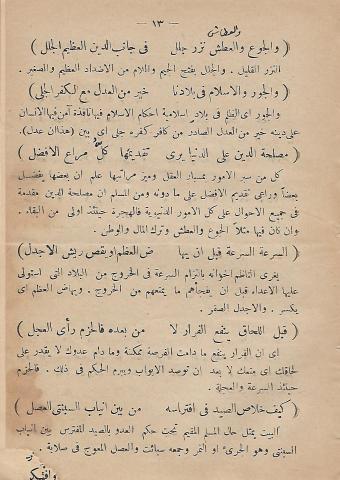 — ١٣ —
والعطاش
( والجوع والعطش نزر جلل في جانب الدين العظيم الجلل )
النزر القليل . والجلل بفتح الجيم واللام من الاضداد العظيم والصغير .
( والجور والاسلام في بلادنا خير من العدل مع الكفر الجلي )
والجور اي الظلم في بلاد اسلامية احكام الاسلام فيها نافذة آمن فيها الانسان
على دينه خير من العدل الصادر من كافر كفره جلي اي بين (هذا ان عدل).
( مصلحة الدين على الدنيا يرى تقديمها كل مراع الافضل )
كل من سبر الامور بمسبار العقل وميز مراتبها علم ان بعضها يفضل
بعضاً وراعي تقديم الافضل على ما دونه ومن المسلم ان مصلحة الدين مقدمة
في جميع الاحوال على كل الامور الدنيوية فالهجرة حينئذ اولى من البقاء .
وان كان فيها مثلاً الجوع والعطش وترك المال والوطن .
( السرعة السرعة قبل ان يها ض العظم او يقص ريش الاجدل )
يغري الناظم اخوانه بالتزام السرعة في الخروج من البلاد التي استولى
عليها الاعداء قبل ان يفجأهم ما يمنعهم من الخروج . ويهاض العظم اي
يكسر . والاجدل الصقر .
( قبل اللحاق ينفع الفرار لا من بعده فالحزم رأى العجل )
اى ان الفرار ينفع ما دامت الفرصة ممكنة وما دام عدوك لا يقدر على
لحاقك اي منعك لا بعد ان توصد الابواب ويبرم الحكم في ذلك . فالحزم
حينئذ السرعة والعجلة .
( كيف خلاص الصيد في افتراسه من بين انياب السبنتى العصل )
البيت يمثل حال المسلم المقيم تحت حكم العدو بالصيد المفترس بين انياب
السبنتى وهو الجرئ او النمر وجمعه سبانت والعصل المعوج في صلابة .